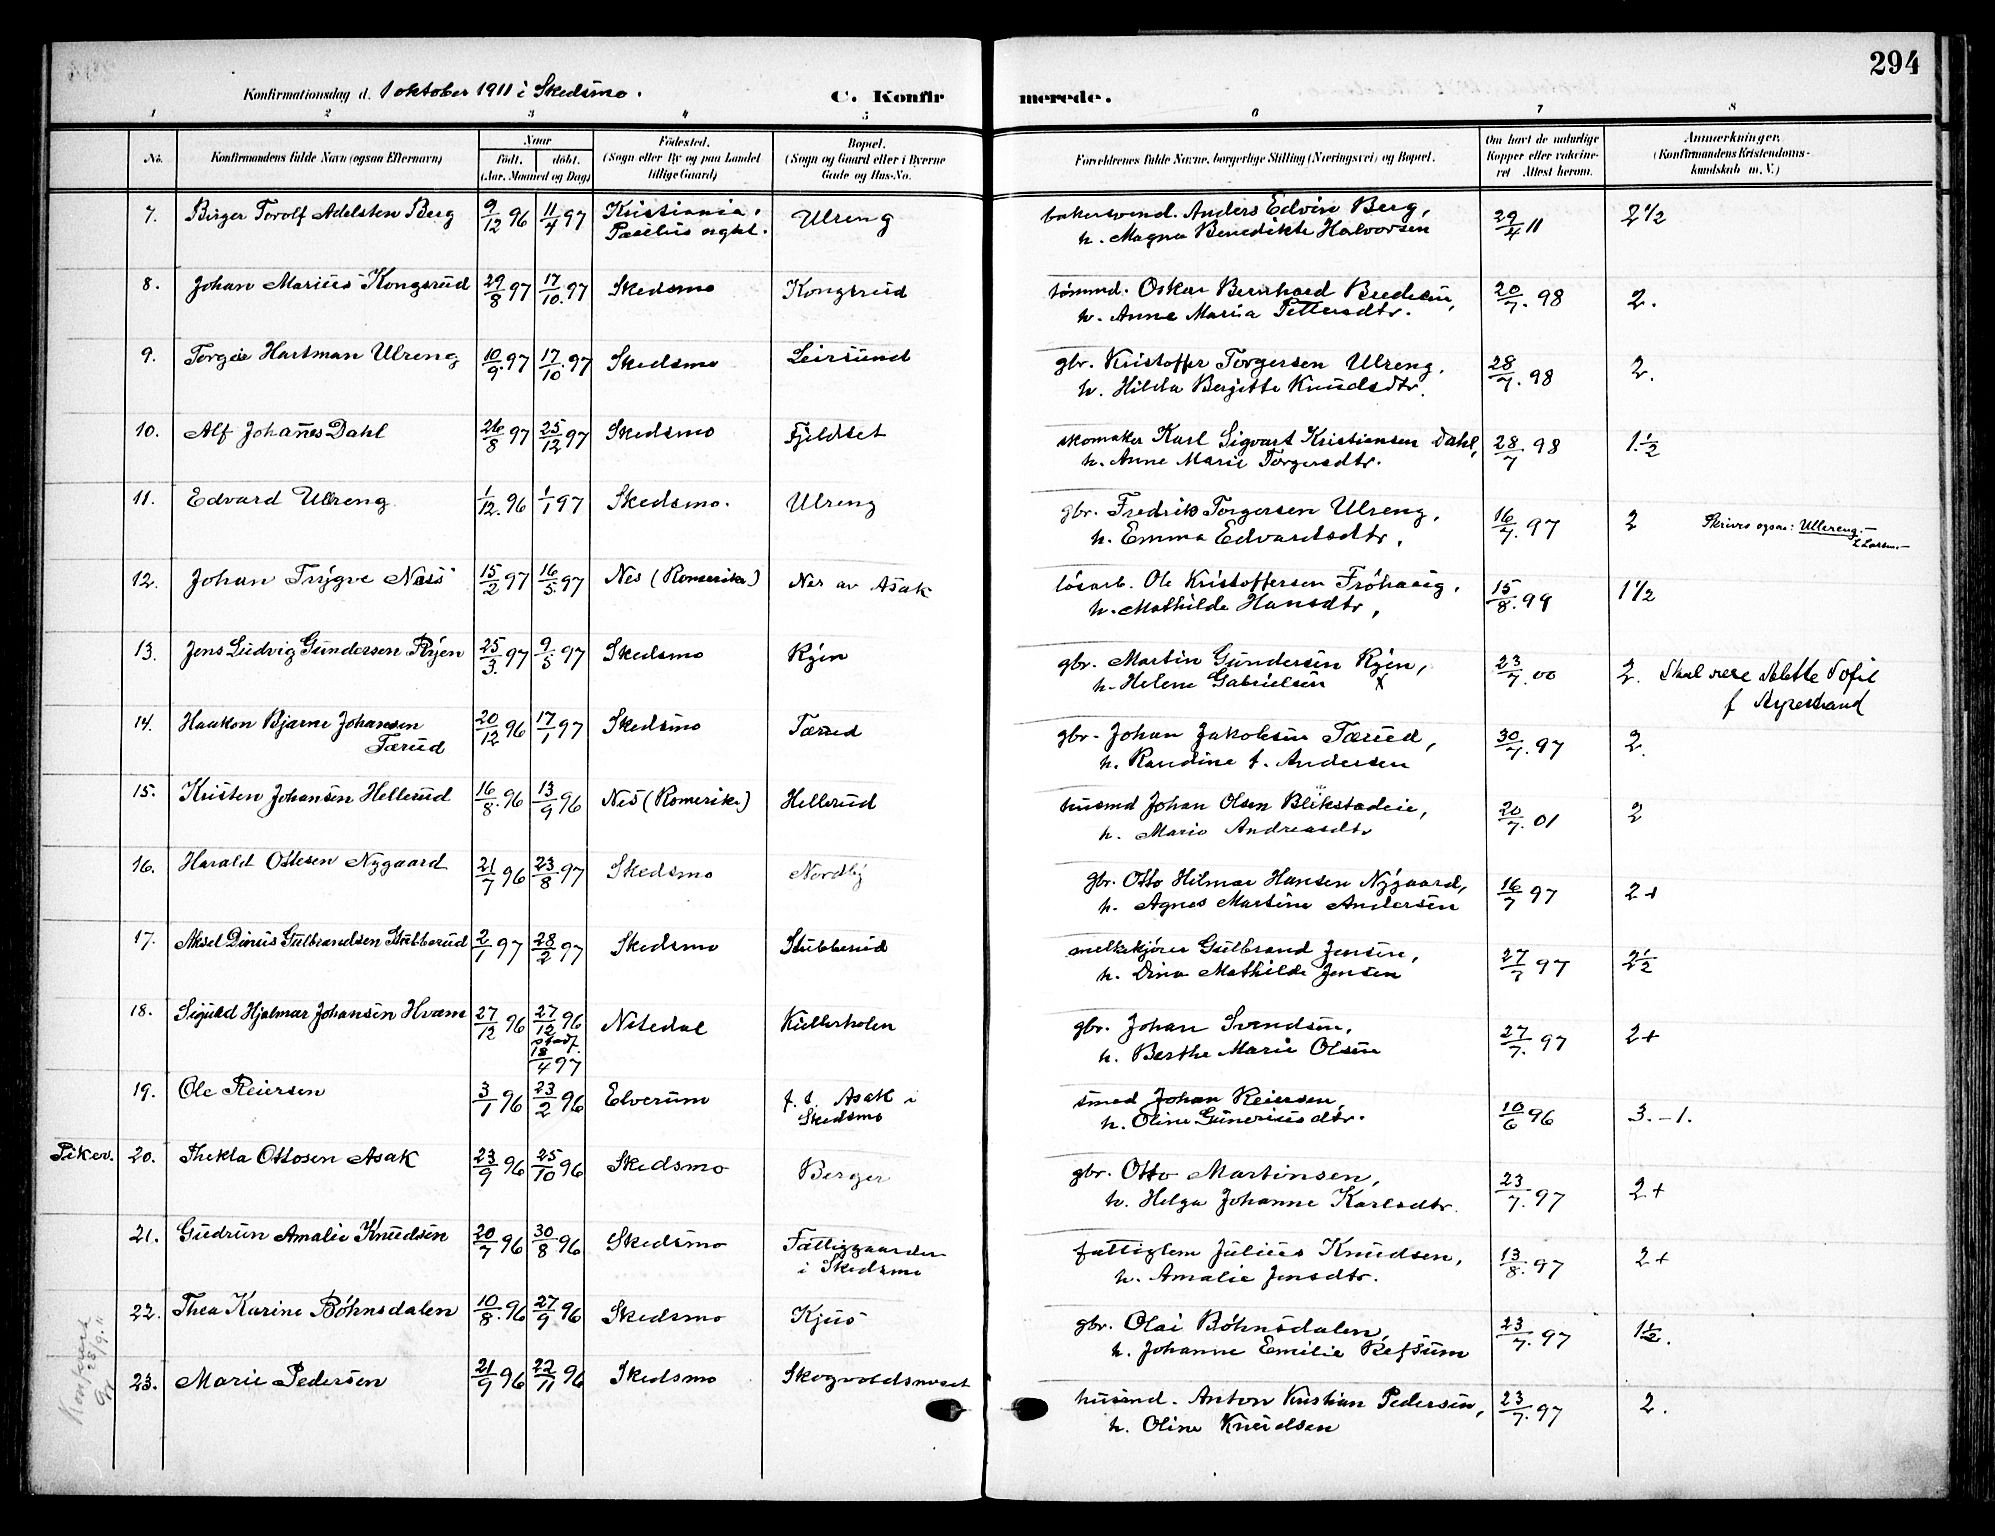 294
Konfirmationsdag d. 1 oktober 1911 i Skedsmo.
C. Konfirmerede.
1 2 3 4 5 6 7 8
No.
Konfirmandens fulde Navn (ogsaa Efternavn)
Naar
født. døbt.
(Aar, Maaned og Dag)
Fødested.
(Sogn eller By og paa Landet
tillige Gaard)
Bopæl.
(Sogn og Gaard eller i Byerne
Gade og Hus-No.
Forældrenes fulde Navne, borgerlige Stilling (Næringsvei) og Bopæl.
Om havt de naturlige
Kopper eller vakcine-
ret Attest herom.
Anmærkninger,
(Konfirmandens Kristendoms-
kundskab m. V.)
7. Birger Torolf Adelsten Berg 9/12 96 11/4 97 Kristiania, Ulreng bakersvend. Anders Edvin Berg, 29/4 11 2 1/2
Paulus sogn. h. Magna Benedikte Halvorsen
8. Johan Marius Kongsrud 29/8 97 17/10. 97 Skedsmo Kongsrud tømmd. Oskar Bernhard Bredesen, 20/7. 98 2.
h. Anne Maria Pettersdtr.
9. Torgeir Hartman Ulreng 10/9. 97 17/10. 97 Skedsmo Leirsund gbr. Kristoffer Torgersen Ulreng, 28/7. 98 2.
h. Hilda Bergitte Knudsdtr.
10. Alf Johanes Dahl 26/8 97 25/12 97 Skedsmo Fjeldset skomaker Karl Sigvart Kristiansen Dahl, 28/7 98 1. 1/2
h. Anne Marie Torgersdtr.
11. Edvard Ulreng 1/12. 96 1/1 97 Skedsmo. Ulreng gbr. Fredrik Torgersen Ulreng, 16/7. 97 2 Skrives ogsaa: Ullereng.
h. Emma Edvardsdtr,
12. Johan Trygve Næss 15/2 97 16/5. 97 Nes (Romerike) Nes av Asak løsarb. Ole Kristoffersen Frøhaug, 15/8. 99 1 1/2
h. Mathilde Hansdtr,
13. Jens Ludvig Gundersen Ryen 25/3. 97 9/5 97 Skedsmo Ryen gbr. Martin Gundersen Ryen, 23/7. 00 2. Skal være Alette Sofie
h. Helene Gabrielsen x f Ayrestrand
14. Haakon Bjarne Johansen 20/12 96 17/1 97 Skedsmo Tærud gbr. Johan Jakobsen Tærud, 30/7. 97 2.
Tærud h. Randine f. Andersen
15. Kristen Johansen Hellerud 16/8. 96 13/9 96 Nes (Romerike) Hellerud husmd Johan Olsen Blikstadeie, 20/7. 01 2
h. Marie Andreasdtr
16. Harald Ottesen Nygaard 21/7 96 23/8 97 Skedsmo Nordby gbr. Otto Hilmar Hansen Nygaard, 16/7 97 2+
h. Agnes Martine Andersen
17. Aksel Dinus Gulbrandsen Stubberud 2/1 97 28/2 97 Skedsmo Stubberud melkekjører Gulbrand Jensen, 27/7 97 2 1/2
h. Dina Mathilde Jensen
18. Sigurd Hjalmar Johansen Hvam 27/12 96 27/12 96 Nitedal Kullerholen gbr. Johan Svendsen, 27/7. 97 2+
stadf.
18/4 97 h. Berthe Marie Olsen
19. Ole Reiersen 3/1 96 23/2 96 Elverum f. t. Asak i smed Johan Reiersen, 10/6 96 3.-1.
Skedsmo h. Oline Guneriusdtr.
Piker. 20. Thekla Ottosen Asak 23/9 96 25/10 96 Skedsmo Berger gbr. Otto Martinsen, 23/7. 97 2+
h. Helga Johanne Karlsdtr.
21. Gudrun Amalie Knudsen 20/7 96 30/8 96 Skedsmo Fattiggaarden fattiglem Julius Knudsen, 13/8. 97 2+
i Skedsmo h. Amalie Jensdtr.
22. Thea Karine Bøhnsdalen 10/8. 96 27/9 96 Skedsmo Kjus gbr. Olai Bøhnsdalen, 23/7. 97 1 1/2.
h. Johanne Emilie Refsum
23. Marie Pedersen 21/9 96 22/11 96 Skedsmo Skogvoldsmoset husmd. Anton Kristian Pedersen, 23/7. 97 2.
h. Oline Knudsen